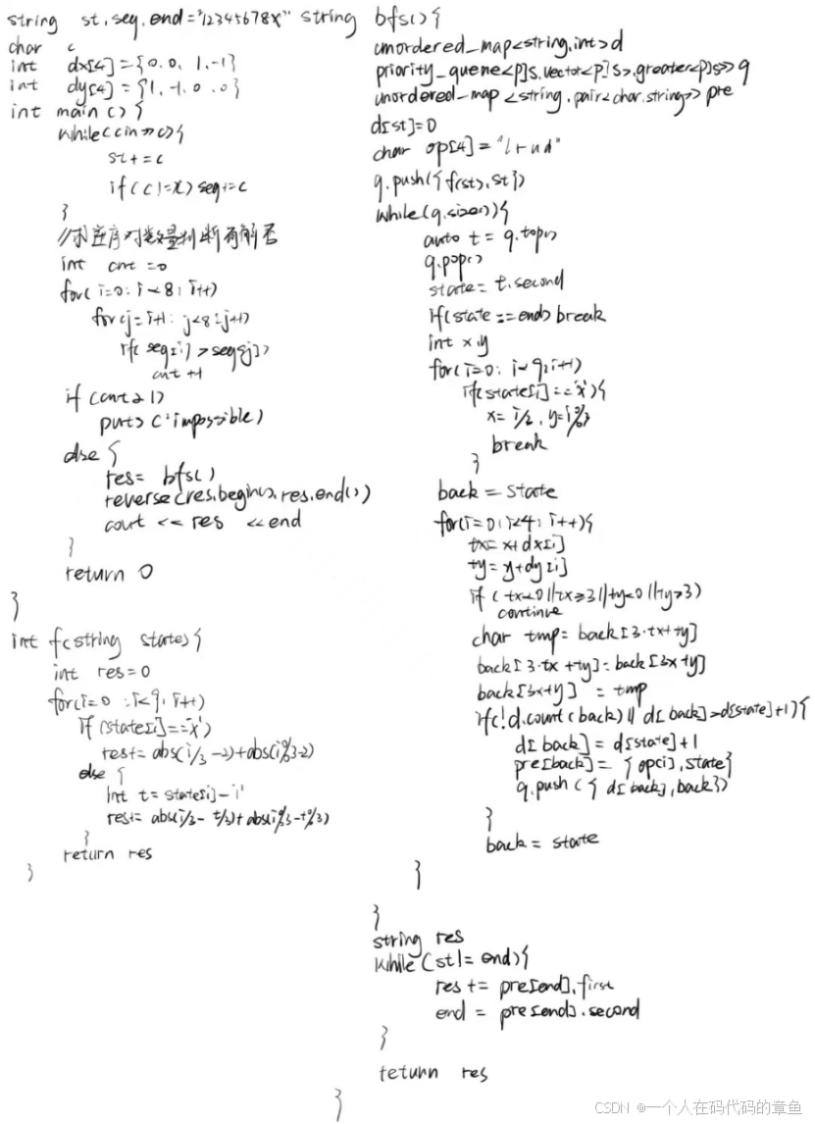 string st, seq, end="12345678x"
char c
int dx[4]={0,0,1,-1}
int dy[4]={1,-1,0,0}
int main(){
while(cin>>c){
st+=c
if(c!=x) seq+=c
}
//求逆序对数量判断有解否
int cnt=0
for(i=0;i<8;i++)
for(j=i+1;j<8;j++)
if(seq[i]>seq[j])
cnt+1
if(cnt&1)
puts("impossible)
else{
res= bfs()
reverse(res.begin(),res.end())
cout << res <<end
}
return 0
}
int f(string state){
int res=0
for(i=0;i<9;i++)
if(state[i]=='x')
res+=abs(i/3-2)+abs(i%3-2)
else{
int t=state[i]-'1'
res+=abs(i/3-t/3)+abs(i%3-t%3)
}
return res
}
string bfs(){
unordered_map<string,int>d
priority_queue<PIS,vector<PIS>,greater<PIS>>q
unordered_map<string,pair<char,string>>pre
d[st]=0
char op[4]="lrud"
q.push({f(st),st})
while(q.size()){
auto t=q.top()
q.pop()
state=t.second
if(state==end) break
int x,y
for(i=0;i<9;i++)
if(state[i]=='x'){
x=i/2,y=i%3
break
}
back = state
for(i=0;i<4;i++){
tx=x+dx[i]
ty=y+dy[i]
if(tx<0||tx>=3||ty<0||ty>=3)
continue
char tmp=back[3·tx+ty]
back[3·tx+ty]=back[3x+y]
back[3x+y] =tmp
if(!d.count(back)||d[back]>d[state]+1){
d[back]=d[state]+1
pre[back]={op[i],state}
q.push({d[back],back})
}
back=state
}
}
string res
while(st!=end){
res+=pre[end].first
end=pre[end].second
}
return res
}
CSDN @一个人在码代码的章鱼